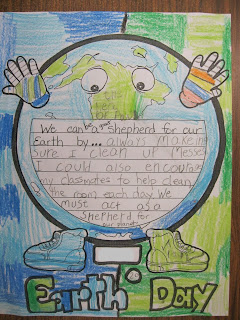 We can be a good shepherd for our
Earth by... always making
sure I clean up messes
I could also encourage
my classmates to help clean
the room each day. We
must act as a
shepherd for
our planet.
Earth Day